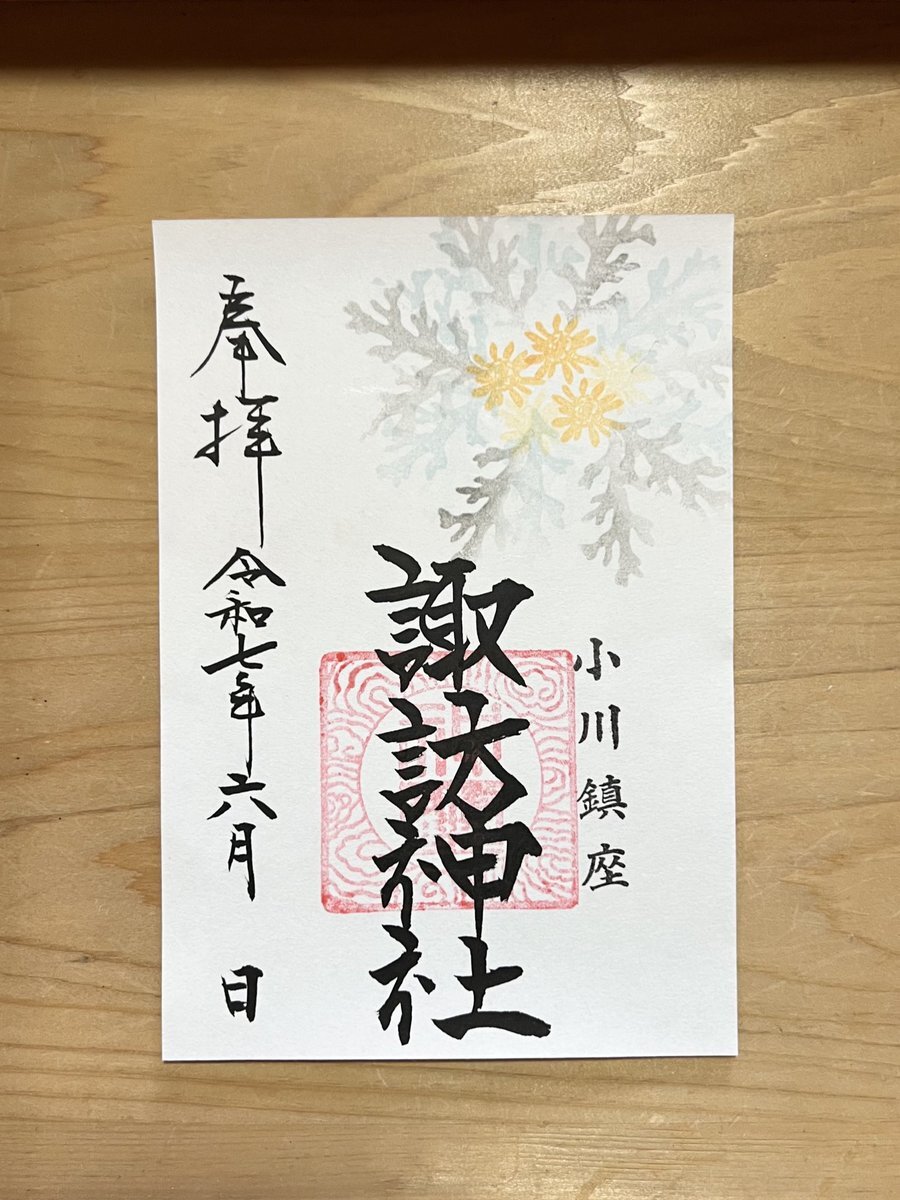 小川鎮座
諏訪神社
奉拝
令和七年六月 日